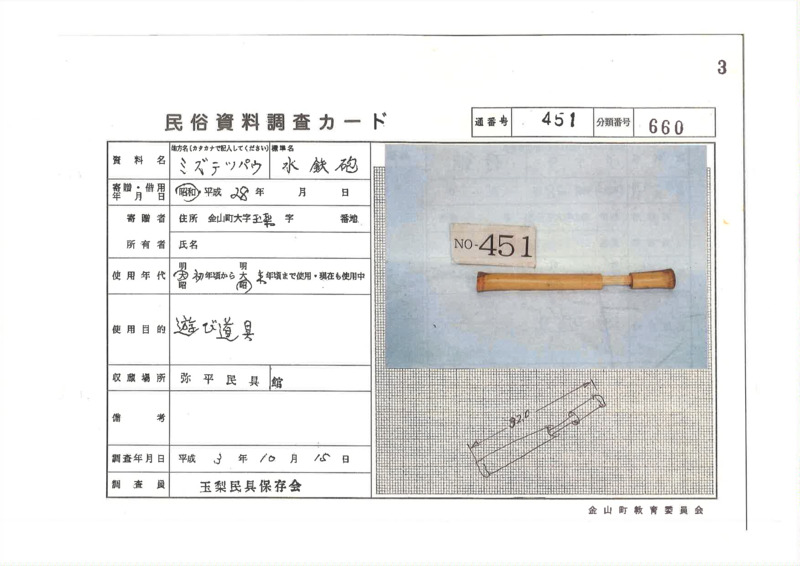 3
民俗資料調査カード
通番号 451 分類番号 660
資料名 地方名(カタカナで記入してください) ミズテツパウ 標準名 水鉄砲
寄贈・借用年月日 昭和 平成 28年 月 日
寄贈者 住所 金山町大字玉梨 字 番地
所有者 氏名
使用年代 明大昭 初年頃から 明大昭 末年頃まで使用・現在も使用中
使用目的 遊び道具
収蔵場所 弥平民具館
備考
調査年月日 平成 3年10月15日
調査員 玉梨民具保存会
NO-451
32.0
金山町教育委員会